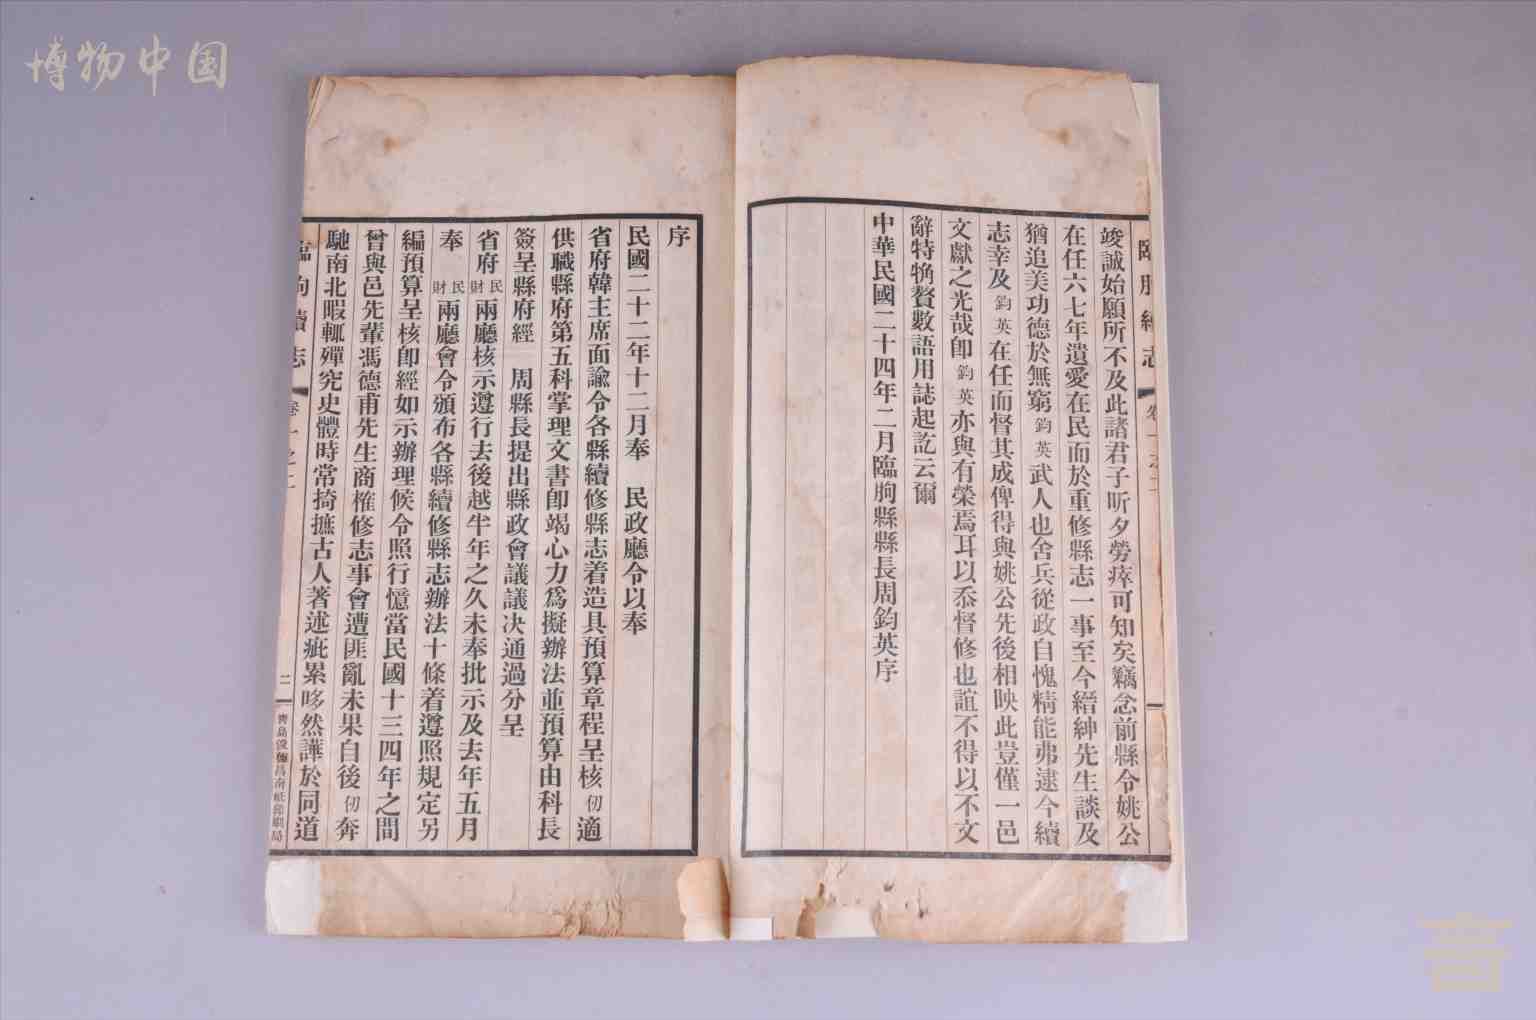 博物中国
竣誠始願所不及此諸君子昕夕勞瘁可知矣竊念前縣令姚公
在任六七年遺愛在民而於重修縣志一事至今縉紳先生談及
猶追美功德於無窮鈞英武人也舍兵從政自愧精能弗逮今續
志幸及鈞英在任而督其成俾得與姚公先後相映此豈僅一邑
文獻之光哉卽鈞英亦與有榮焉耳以忝督修也誼不得以不文
辭特觕贅數語用誌起訖云爾
中華民國二十四年二月臨朐縣縣長周鈞英序
序
民國二十二年十二月奉　民政廳令以奉
省府韓主席面諭令各縣續修縣志着造具預算章程呈核仞適
供職縣府第五科掌理文書卽竭心力爲擬辦法並預算由科長
簽呈縣府經　周縣長提出縣政會議議決通過分呈
省府民財兩廳核示遵行去後越半年之久未奉批示及去年五月
奉　民財兩廳會令頒布各縣續修縣志辦法十條着遵照規定另
編預算呈核卽經如示辦理候令照行憶當民國十三四年之間
曾與邑先輩馮德甫先生商榷修志事會遭匪亂未果自後仞奔
馳南北暇輒殫究史體時常掎摭古人著述疵累哆然譁於同道
臨朐續志　卷一之二　二